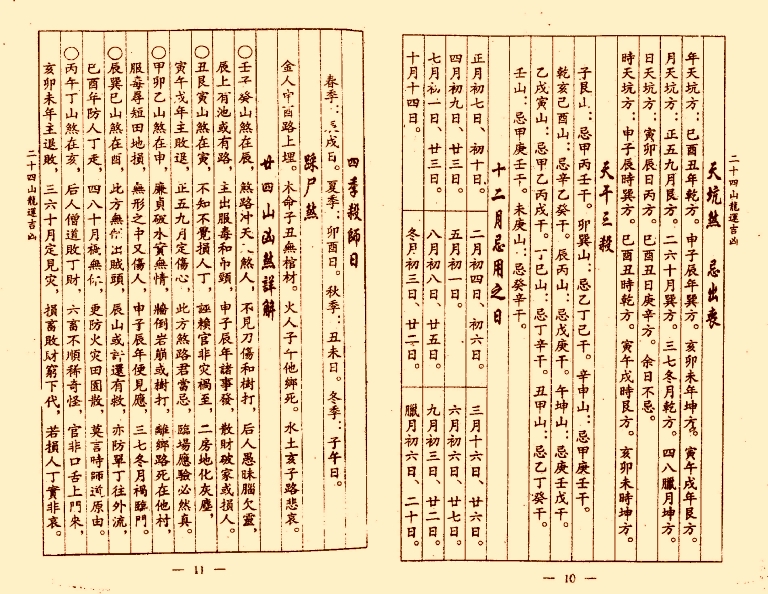 二十四山龍運吉凶
天坑煞　忌出喪
年天坑方：巳酉丑年乾方。申子辰年巽方。亥卯未年坤方。寅午戌年艮方。
月天坑方：正五九月艮方。二六十月巽方。三七冬月乾方。四八臘月坤方。
日天坑方：寅卯辰日丙方。巳酉丑日庚辛方。余日不忌。
時天坑方：申子辰時巽方。巳酉丑時乾方。寅午戌時艮方。亥卯未時坤方。
天干三殺
子艮山：忌甲丙壬干。卯巽山：忌乙丁己干。辛申山：忌甲庚壬干。
乾亥己酉山：忌辛乙癸干。辰丙山：忌戊庚干。午坤山：忌庚壬戊干。
乙戌寅山：忌甲乙丙戌干。丁巳山：忌丁辛干。丑甲山：忌乙丁癸干。
壬山：忌甲庚壬干。未庚山：忌癸辛干。
十二月忌用之日
正月初七日、初十日。　二月初四日、初六日。　三月十六日、廿六日。
四月初九日、廿三日。　五月初一日。　六月初六日、廿七日。
七月初一日、廿三日。　八月初八日、廿五日。　九月初三日、廿二日。
十月十四日。　冬月初三日、廿二日。　臘月初六日、二十日。
— 10 —
四季殺師日
春季：辰戌日。夏季：卯酉日。秋季：丑未日。冬季：子午日。
踩尸煞
金人申酉路上埋。木命子丑無棺材。火人子午他鄉死。水土亥子路悲哀。
廿四山凶煞詳解
○壬子癸山煞在辰，煞路冲天煞人，不見刀傷和樹打，后人愚昧腦欠靈，
辰上有池或有路，主出服毒和吊頸，申子辰年諸事發，散財破家或損人。
○丑艮寅山煞在寅，不知不覺損人丁，誣賴官非灾禍至，二房地化灰塵，
寅午戌年主敗退，正五九月定傷心，此方煞路君當忌，臨場應驗必然真。
○甲卯乙山煞在申，廉貞破水貧無情，牆倒岩崩或樹打，離鄉路死在他村，
服毒尋短田地損，無形之中又傷人，申子辰年便見應，三七冬月禍臨門。
○辰巽巳山煞在酉，此方無出賊頭，辰山或許還有救，亦防單丁往外流，
巳酉年防人丁走，四八十月禍無休，更防火灾田園散，莫言時師道原由。
○丙午丁山煞在亥，后人僧道敗丁財，六畜不順稀奇怪，官非口舌上門來，
亥卯未年主退敗，三六十月定見灾，損畜敗財窮下代，若損人丁實非哀。
二十四山龍運吉凶
— 11 —